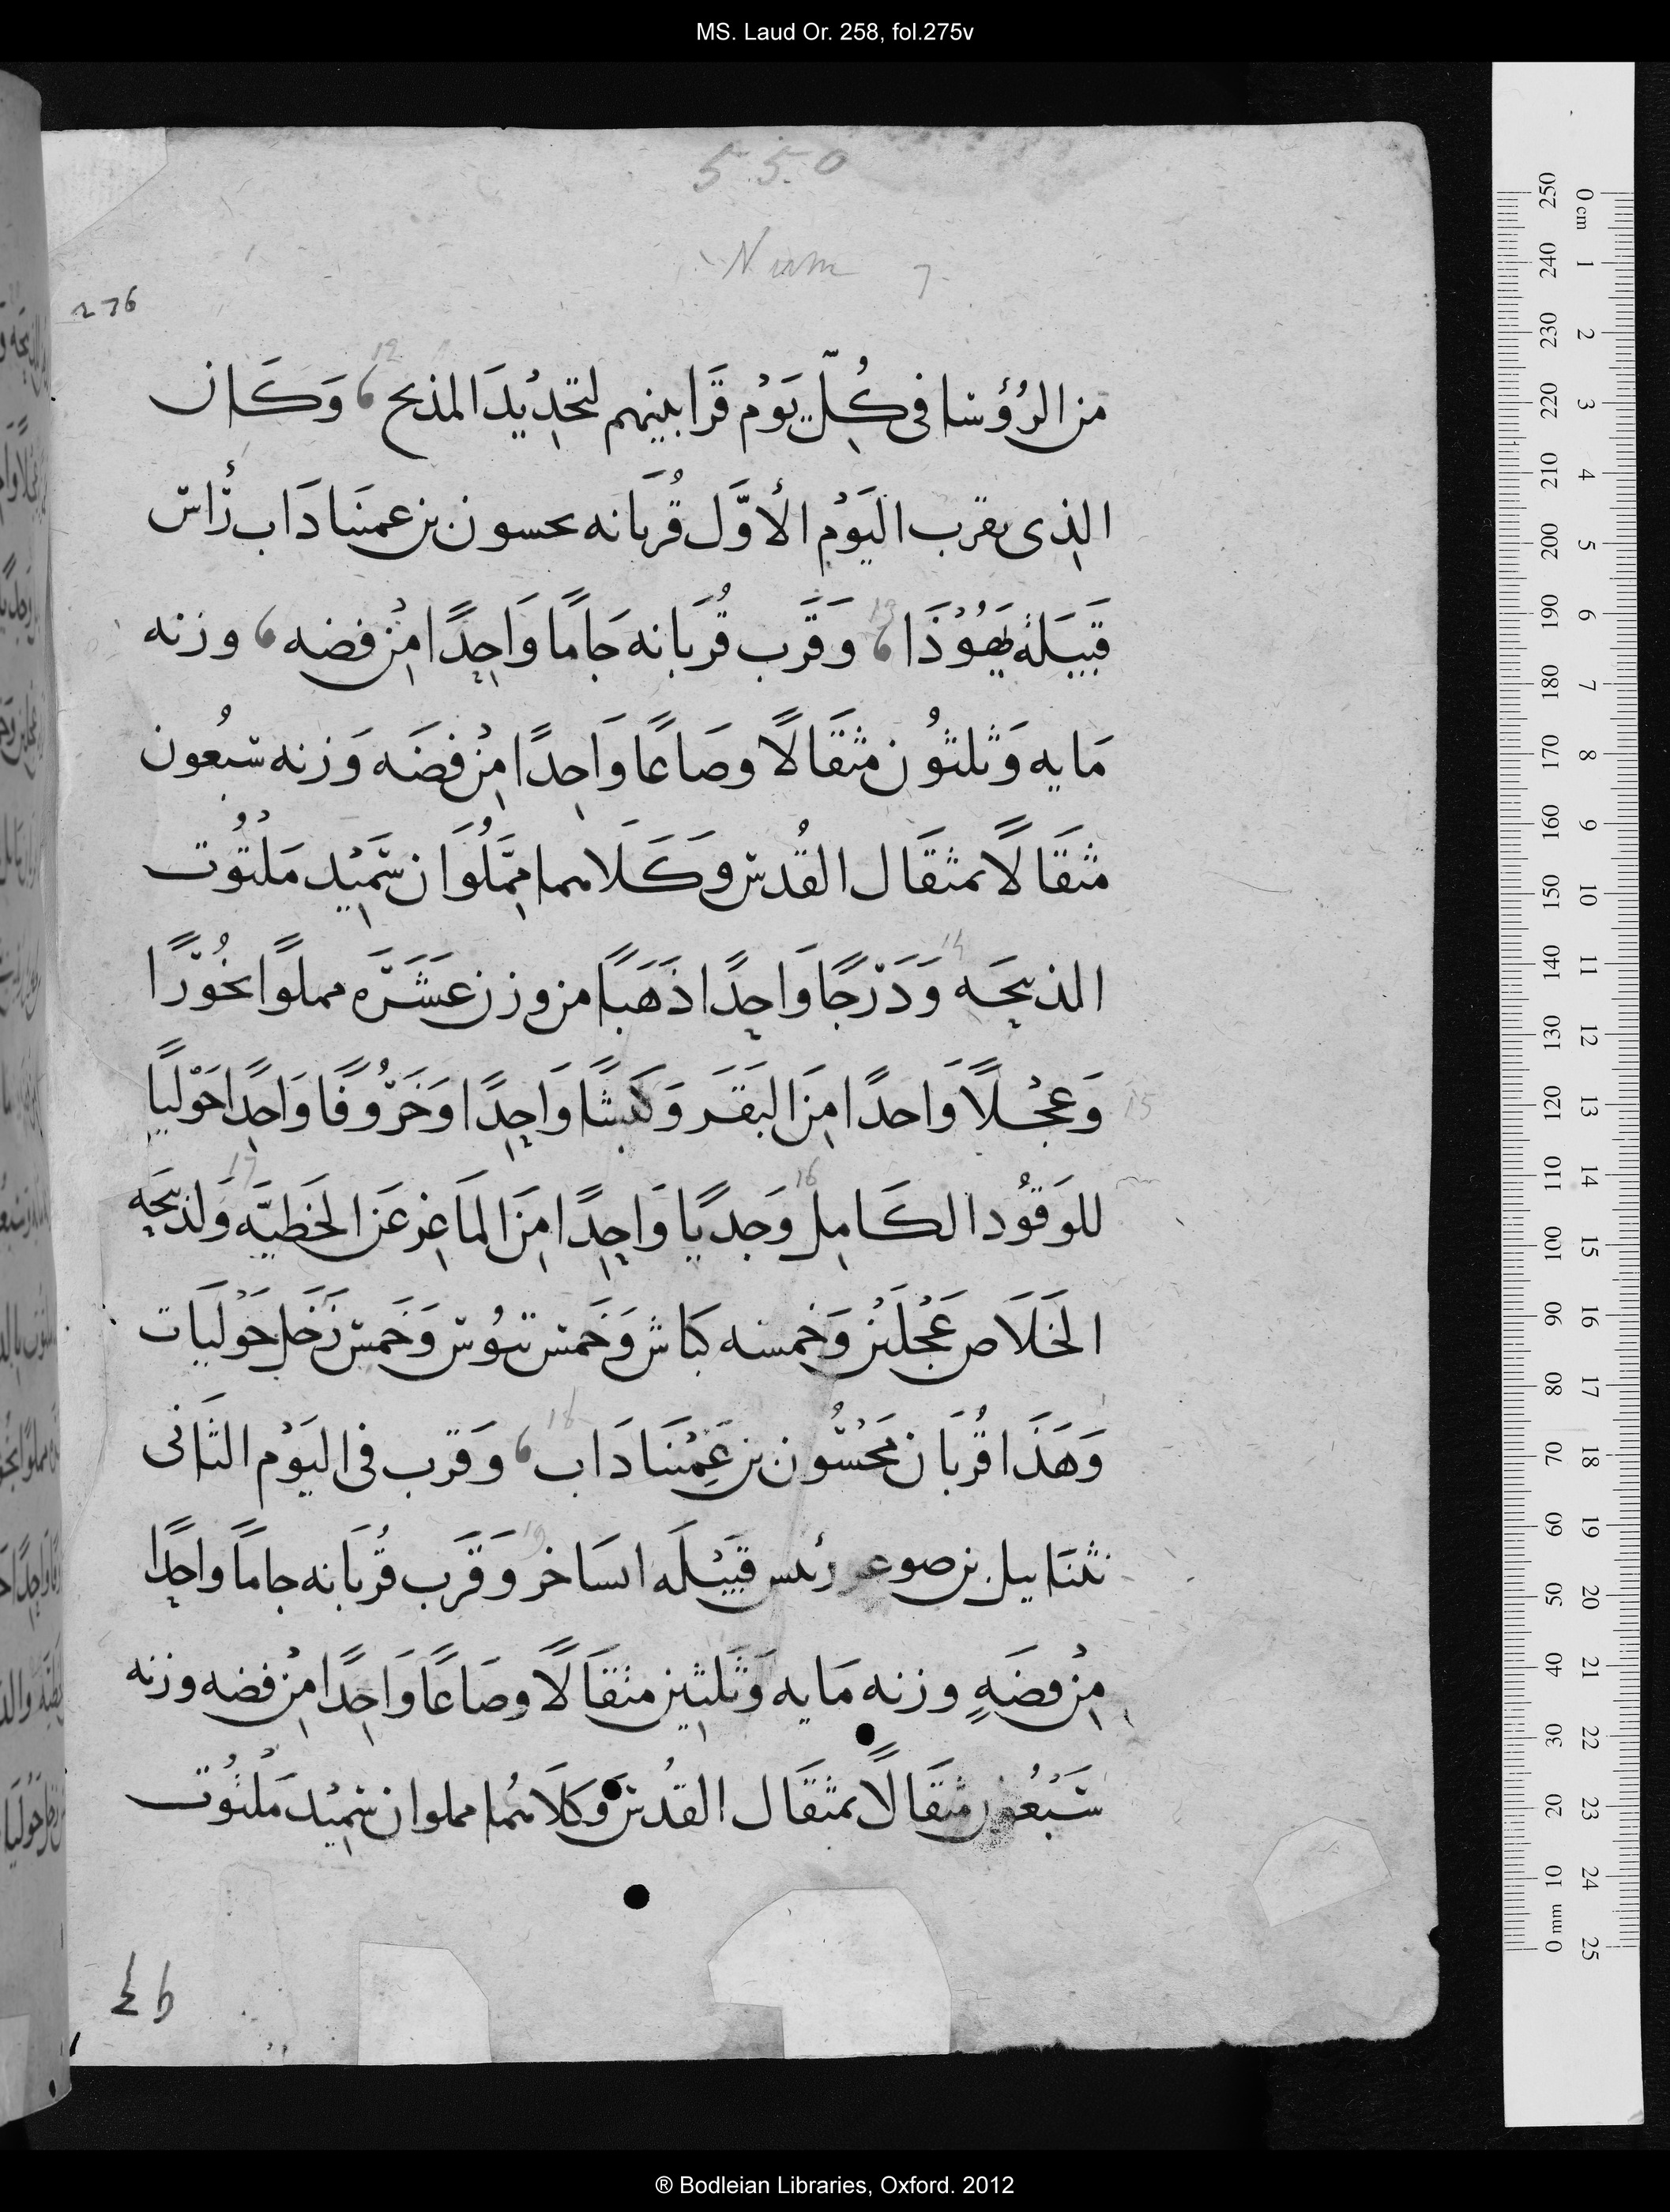 MS. Laud Or. 258, fol.275v
550
Num 7
276
12
من الرُؤسا فى كُلِّ يَوْم قَرابينهم لتجدِيْدَ المذبح، وَكَان
الذِى يقرب اليَوْم الأوَّل قُربَانه نحسون بن عمينَاداب رَأس
13
قَبِيَلة يَهُوْذَا، وَقَرَّب قُربَانه جَامًا وَاحِدًا مِنْ فضه، وزنه
مَايه وَثلثُون مثقَالًا وصَاعًا وَاحِدًا مِنْ فضَه وَزنه سبعُون
مثقَالًا بمثقَال القُدس وَكَلَاهما مِمَّلُوَان سَمِيْد مَلْتُوْت
14
الذبيحَه وَدَرْجًا وَاحِدًا ذَهَبًا من وزن عَشَرَه مملوًا بخُوْرًا
15
وَعجْلًا وَاحدًا مِنَ البَقَر وَكَبشًا وَاحِدًا وَخَرُوْفًا وَاحِدًا حَوْليًا
16 17
للوَقُود الكَامِل وَجَديًا وَاحِدًا مِنَ المَاعِز عَن الخَطيَّه وَلذبيحَه
الخَلَاص عَجْلَيْن وَخمسه كبَاش وَخَمس تيُوْس وَخَمس رَخَل حَوْليَات
18
وَهَذَا قُربَان نَحْسُون بن عَمِيْنَادَاب، وَقَرب فى اليَوْم الثَانى
19
نثنَاييل بن صوعر رئيس قَبِيْلَه ايسَاخر وَقَرَب قُربَانه جامًا واحِدًا
مِنْ فضَهٍ وزنه مَايه وَثَلَثِين مثقَالًا وصَاعًا وَاحِدًا مِنْ فضه وزنه
سَبْعُون مثقَالًا بمثقَال القُدْس وَكلَاهُما مملوان سَمِيْد مَلْتُوْت
® Bodleian Libraries, Oxford. 2012